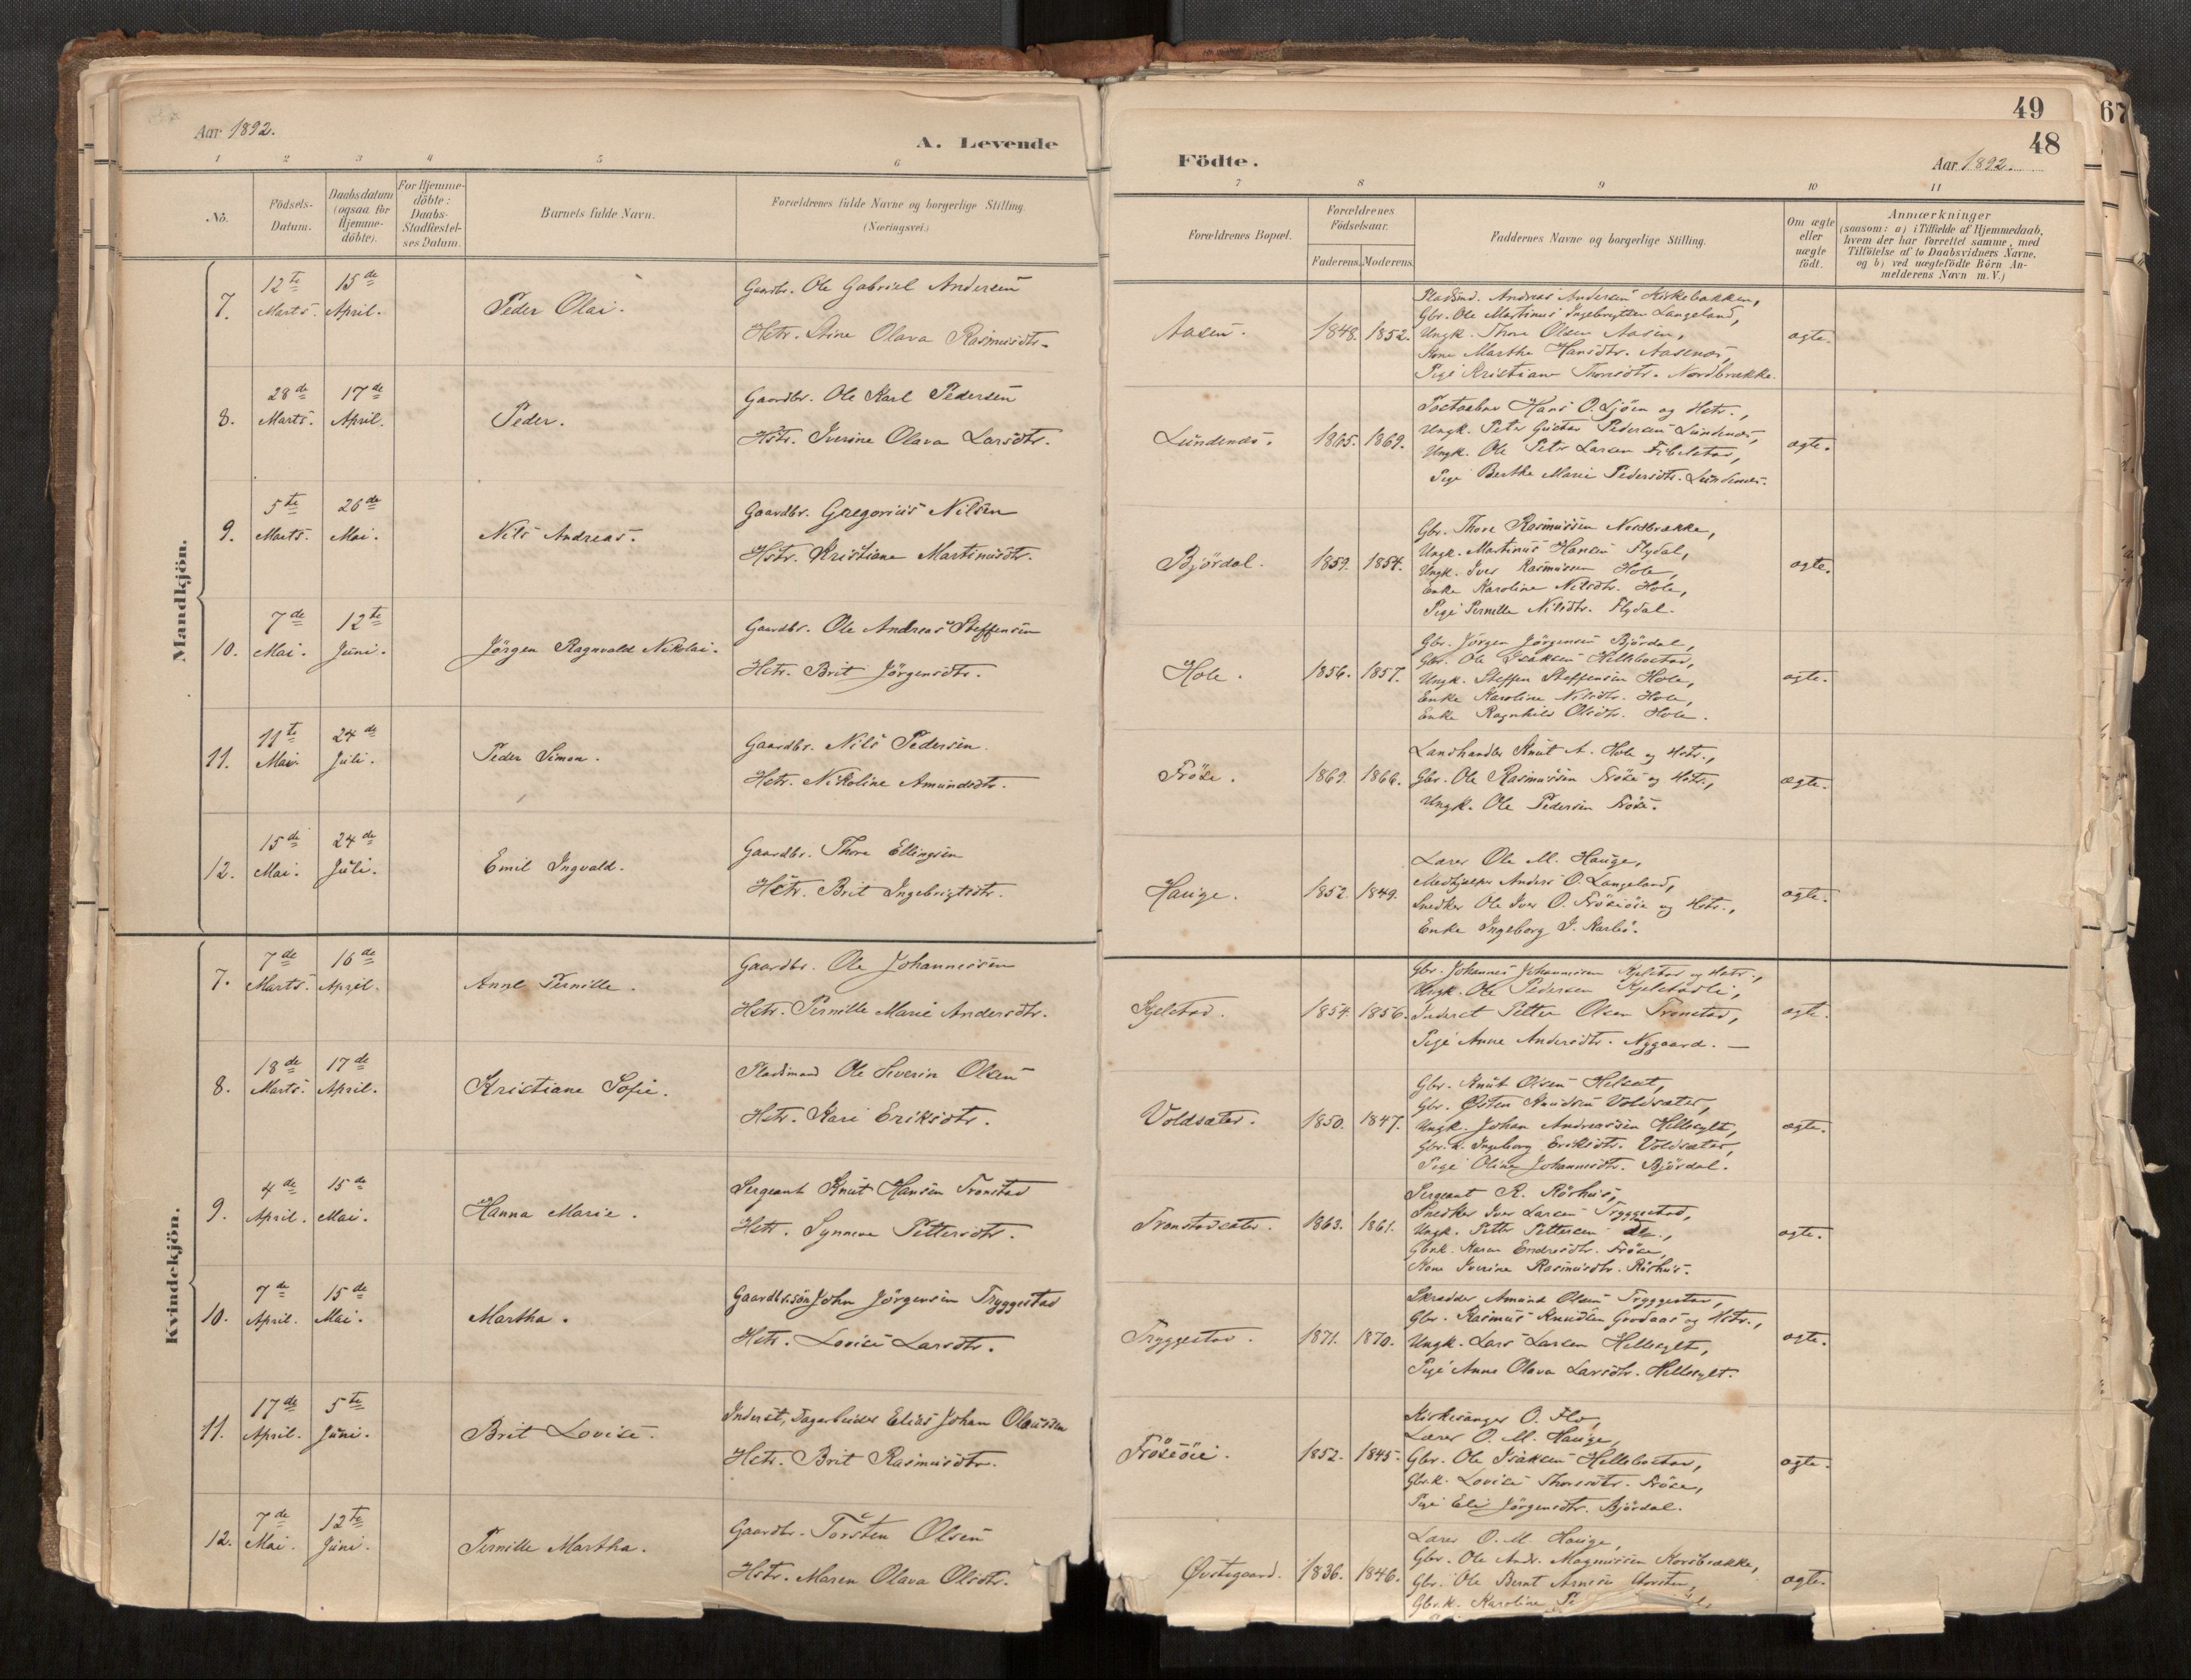 49
67
48
Aar 1892.
A. Levende
Födte.
Aar 1892.
1 2 3 4 5 6
7 8 9 10 11
No.
Födsels-Datum.
Daabsdatum (ogsaa for Hjemme-döbte).
For Hjemme-döbte: Daabs-Stadfæstel-ses Datum.
Barnets fulde Navn.
Forældrenes fulde Navne og borgerlige Stilling.
(Næringsvei.)
Forældrenes Bopæl.
Forældrenes Födselsaar.
Faderens. Moderens.
Faddernes Navne og borgerlige Stilling.
Om ægte eller uægte födt.
Anmærkninger
(saasom: a) i Tilfælde af Hjemmedaab,
hvem der har forrettet samme, med
Tilföielse af to Daabsvidners Navne,
og b) ved uægtefödte Börn An-
melderens Navn m. V.)
Mandkjön.
7. 12te Marts. 15de April. Peder Olai.
Gaardbr. Ole Gabriel Andersen
Hstr. Stine Olava Rasmusdtr.
Aasen. 1848. 1852.
Pladsmd. Andreas Andersen Kirkebakken,
Gbr. Ole Martinus Ingebrigtsen Langeland,
Ungk. Thore Olsen Aasen,
Kone Marthe Hansdtr. Aasenes,
Pige Kristiane Thoresdtr. Nordbrække.
ægte.
8. 28de Marts. 17de April. Peder.
Gaardbr. Ole Karl Pedersen
Hstr. Iverine Olava Larsdtr.
Lundenes. 1865. 1869.
Hans O. Ljöen og Hstr.,
Ungk. Peter Gustav Pedersen Lundenes,
Ungk. Ole Petr Larsen Fibelstad,
Pige Berthe Marie Pedersdtr. Lundenes.
ægte.
9. 5te Marts. 26de Mai. Nils Andreas.
Gaardbr. Gregorius Nilsen
Hstr. Kristiane Martinusdtr.
Bjørdal. 1859. 1854.
Gbr. Thore Rasmussen Nordbrække,
Ungk. Martinus Hansen Flydal,
Ungk. Iver Rasmussen Hole,
Enke Karoline Nilsdtr. Hole,
Pige Pernille Nilsdtr. Flydal.
ægte.
10. 7de Mai. 12te Juni. Jörgen Ragnvald Nikolai.
Gaardbr. Ole Andreas Steffensen
Hstr. Brit Jörgensdtr.
Hole. 1856. 1857.
Gbr. Jörgen Jörgensen Bjørdal,
Gbr. Ole Isaksen Hellebostad,
Ungk. Steffen Steffensen Hole,
Enke Karoline Nilsdtr. Hole,
Enke Ragnhild Olsdtr. Hole.
ægte.
11. 11te Mai. 24de Juli. Peder Simon.
Gaardbr. Nils Pedersen.
Hstr. Nikoline Amundsdtr.
Fröse. 1869. 1866.
Landhandler Knut A. Hole og Hstr.,
Gbr. Ole Rasmussen Fröse og Hstr.,
Ungk. Ole Pedersen Fröse.
ægte.
12. 15de Mai. 24de Juli. Emil Ingvald.
Gaardbr. Thore Ellingsen
Hstr. Brit Ingebrigtsdtr.
Hauge. 1852. 1849.
Lærer Ole M. Hauge,
Medhjælper Anders O. Langeland,
Snedker Ole Iver O. Fröseöie og Hstr.,
Enke Ingeborg J. Karlsö.
ægte.
Kvindekjön.
7. 7de Marts. 16de April. Anne Pernille.
Gaardbr. Ole Johannessen
Hstr. Pernille Marie Andersdtr.
Kjelstad. 1854. 1856.
Gbr. Johannes Johannesen Kjelstad og Hstr.,
Ungk. Ole Pedersen Kjelstadli,
Inderst Petter Olsen Tronstad,
Pige Anne Andersdtr. Nygaard. —
ægte.
8. 18de Marts. 17de April. Kristiane Sofie.
Pladsmand Ole Severin Olsen
Hstr. Kari Eriksdtr.
Voldsæter. 1850. 1847.
Gbr. Knut Olsen Helset,
Gbr. Østen Knudsen Voldsæter,
Ungk. Johan Andreassen Hellesylt,
Gbr.k. Ingeborg Eriksdtr. Voldsæter,
Pige Oline Johannesdtr. Bjørdal.
ægte.
9. 4de April. 15de Mai. Hanna Marie.
Sergeant Knut Hansen Tronstad
Hstr. Synneve Pettersdtr.
Tronstadsæter. 1863. 1861.
Sergeant R. Röshus,
Snedker Iver Larsen Tryggestad,
Ungk. Petter Pettersen do.,
Gbr.k. Karen Endresdtr. Fröse,
Kone Iverine Rasmusdtr. Röshus.
ægte.
10. 7de April. 15de Mai. Martha.
Gaardbr.sön John Jörgensen Tryggestad
Hstr. Lovise Larsdtr.
Tryggestad. 1871. 1870.
Skrædder Amund Olsen Tryggestad,
Gbr. Rasmus Knudsen Grodaas og Hstr.,
Ungk. Lars Larsen Hellesylt,
Pige Anne Olava Larsdtr. Hellesylt.
ægte.
11. 17de April. 5te Juni. Brit Lovise.
Inderst, Dagarbeider Elias Johan Olaussen
Hstr. Brit Rasmusdtr.
Fröseöie. 1852. 1845.
Kirkesanger O. Flo,
Lærer O. M. Hauge,
Gbr. Ole Isaksen Hellebostad,
Gbr.k. Lovise Thoresdtr. Fröse,
Pige Eli Jörgensdtr. Bjørdal.
ægte.
12. 7de Mai. 12te Juni. Pernille Martha.
Gaardbr. Torsten Olsen
Hstr. Maren Olava Olsdtr.
Øvstegaard. 1836. 1846.
Lærer O. M. Hauge,
Gbr. Ole Andr. Magnussen Korsbrække,
Gbr. Ole Bernt Arnesen
Gbr.k. Karoline Pe
ægte.